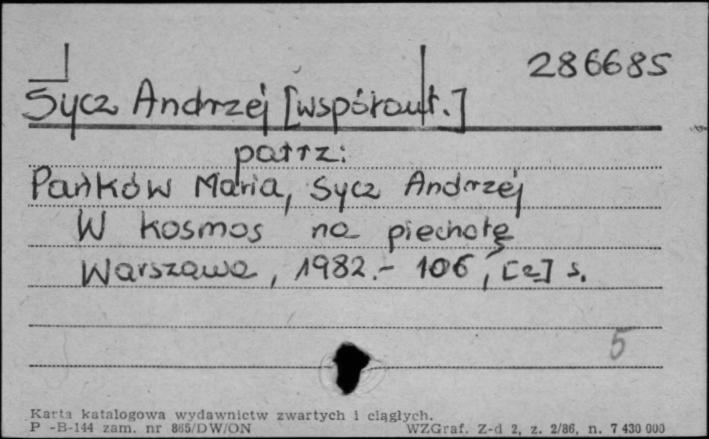 286685
Sycz Andrzej [współaut.]
patrz:
Pańków Maria, Sycz Andrzej
W kosmos na piechotę
Warszawa, 1982.- 106, [2] s.
5
Karta katalogowa wydawnictw zwartych i ciągłych.
P -B-144 zam. nr 865/DW/ON WZGraf. Z-d 2, z. 2/86, n. 7 430 000